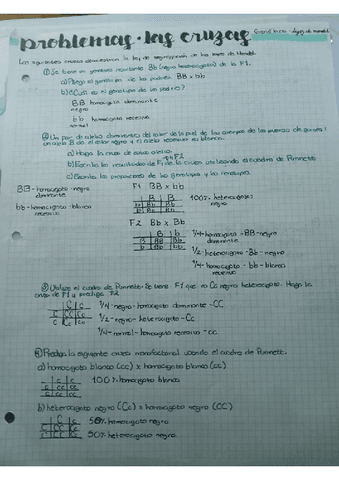 Problemas - las cruzas
Los siguientes cruces demuestran la ley de segregación de las leyes de Mendel.
① Se tiene un genotipo resultante Bb (negro heterocigoto) de la F1.
a) ¿Llego el genotipo de los padres BB x bb
b) ¿Cuál es el genotipo de los padres?
BB homocigoto dominante
negro
bb homocigoto recesivo
normal
② Un par de alelos dominantes del color de la piel de los
un alelo B da el color negro y el alelo recesivo es blanco.
a) Haga la cruza de estos alelos.
b) Escriba los resultados de F1 de la cruza utilizando el cuadro de Punnett
c) Escriba las proporciones de los genotipos y los fenotipos.
BB - homocigoto - negro
dominante
bb - homocigoto - blanco
recesivo
F1 BB x bb
B B
b Bb Bb
b Bb Bb
100% heterocigotos
negro
F2 Bb x Bb
B b
B BB Bb
b Bb bb
1/4 - homocigoto - BB - negro
dominante
1/2 - heterocigoto - Bb - negro
1/4 - homocigoto - bb - blanco
recesivo
③ Utilice el cuadro de Punnett. Se tiene F1 que es Cc negro heterocigoto. Haga la
cruza de F1 y prediga F2
1/4 - negro - homocigoto dominante - CC
1/2 - negro - heterocigoto - Cc
1/4 - normal - homocigoto recesivo - cc
④ Realiza la siguiente cruza monofactorial usando el cuadro de Punnett.
a) homocigoto blanco (cc) x homocigoto blanco (cc)
c c
c cc cc
c cc cc
100% homocigoto blanco
b) heterocigoto negro (Cc) x homocigoto negro (CC)
C c
C CC Cc
C CC Cc
50% homocigoto negro
50% heterocigoto negro.